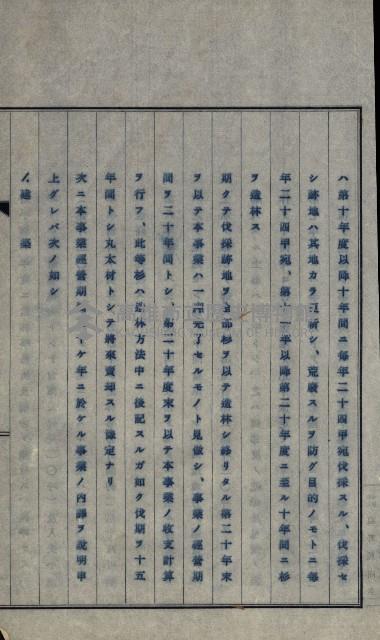 ハ第十年度以降十年間ニ毎年二十四甲宛伐採スル、伐採セ
シ跡地ハ其地カラ更新シ、荒廢スルヲ防グ目的ノモトニ毎
年二十四甲宛、第十一年以降第二十年度ニ至ル十年間ニ杉
ヲ造林ス
期クテ伐採跡地ヲ全部杉ヲ以テ造林シ終リタル第二十年末
ヲ以テ本事業ハ一部完了セルモノト見做シ、事業ノ經營期
間ヲ二十年間トシ、第二十年度末ヲ以テ本事業ノ收支計算
ヲ行フ、此等杉ハ造林方法中ニ後記スルガ如ク伐期ヲ十五
年間トシ丸太材トシテ將來賣却スル豫定ナリ
次ニ本事業經營期二十ケ年ニ於ケル事業ノ内譯ヲ説明申
上グレバ次ノ如シ
建築